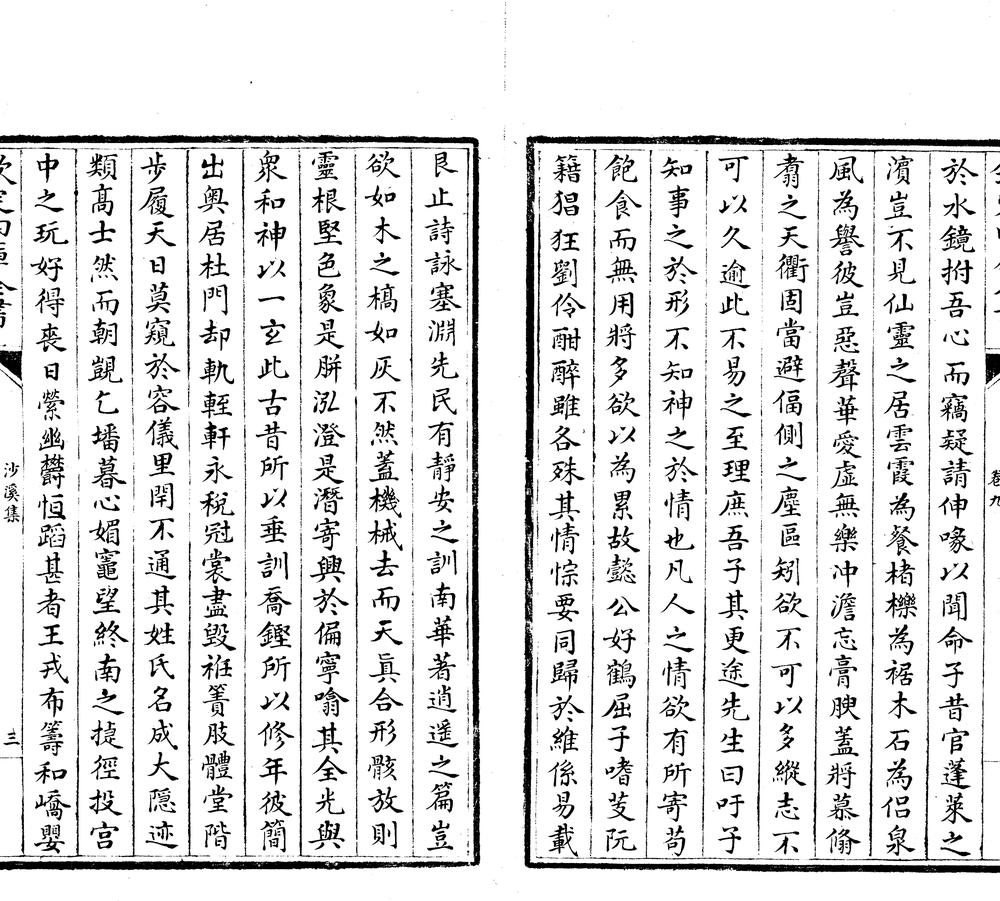 於水鏡拊吾心而竊疑請伸喙以聞命子昔官蓬萊之
濱豈不見仙靈之居雲霞為餐楮櫟為裾木石為侶泉
風為譽彼豈惡聲華愛虛無樂冲澹忘膏腴蓋將慕翛
翥之天衢固當避偪側之塵區矧欲不可以多縱志不
可以久逾此不易之至理庶吾子其更途先生曰吁子
知事之於形不知神之於情也凡人之情欲有所寄苟
飽食而無用將多欲以為累故懿公好鶴屈子嗜芰阮
籍猖狂劉伶酣醉雖各殊其情悰要同歸於維係易載
艮止詩詠塞淵先民有靜安之訓南華著逍遥之篇豈
欲如木之槁如灰不然蓋機械去而天真合形骸放則
靈根堅色象是胼泓澄是潛寄興於偏寧喻其全光與
衆和神以一玄此古昔所以垂訓喬鏗所以修年彼簡
出奥居杜門却軌輕軒永稅冠裳盡毀袵簀肢體堂階
步履天日莫窺於容儀里閈不通其姓氏名成大隱迹
類髙士然而朝覬乞墦暮心媚竈望終南之捷徑投宫
中之玩好得喪日縈幽欝恒蹈甚者王戎布籌和嶠嬰
沙溪集
三
卷九